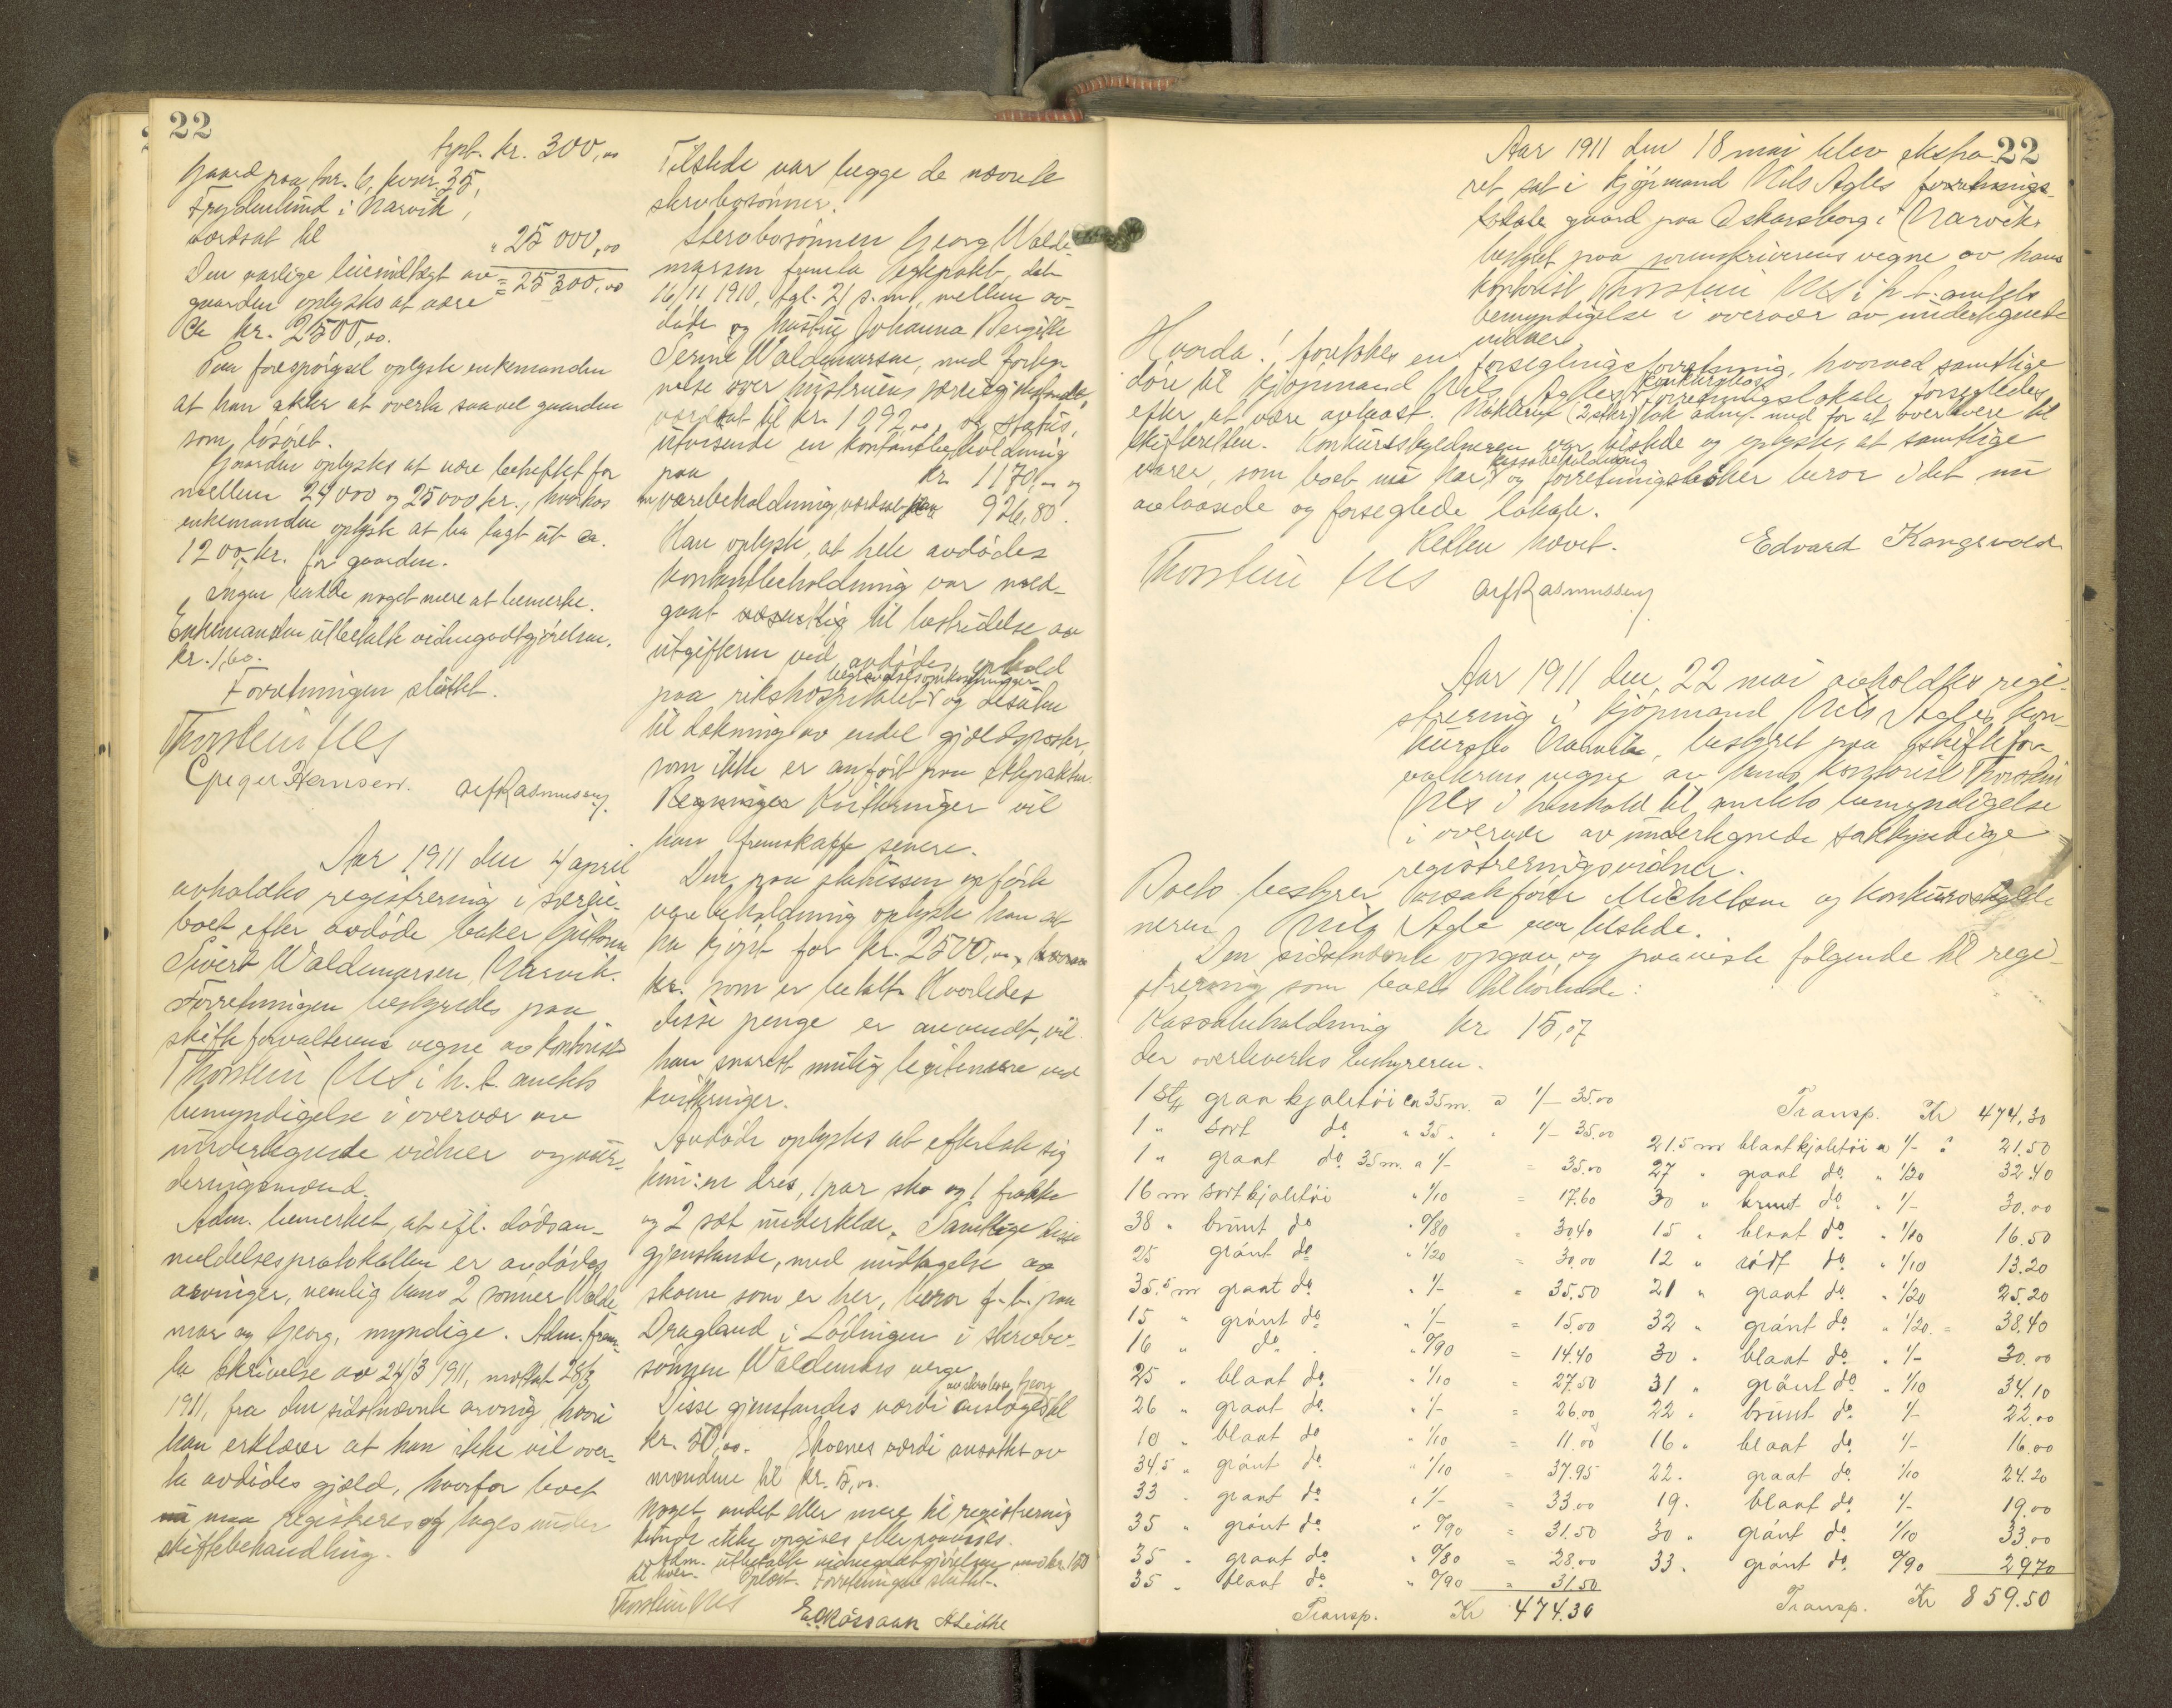 22
trpt. kr. 300,00
Gaard paa bnr. 6, kvar. 35,
Frydenlund i Narvik,
værdsat til " 25 000,00
= 25 300,00
Den aarlige leieindtægt av
gaarden oplystes at være
ca kr. 2500,00.
Paa forespørgsel oplyste enkemanden
at han akter at overta saavel gaarden
som løsøret.
Gaarden oplystes at være beheftet for
mellem 24000 og 25000 kr., hvorhos
enkemanden oplyste at ha lagt ut ca.
1200,- kr. for gaarden.
Ingen hadde noget mere at bemerke.
Enkemanden utbetalte vidnegodtgjørelsen,
kr. 1,60.
Forretningen sluttet.
Thorstein Nes
Greger Hansen. Alf Rasmussen.
Aar 1911 den 4 april
avholdtes registrering i særgje-
boet efter avdøde baker
Sivert Waldemarsen, Narvik.
Forretningen bestyredes paa
skifteforvalterens vegne av kontorist
Thorstein Nes i h. t. amtets
bemyndigelse i overvær av
undertegnede vidner og vur-
deringsmænd.
Adm. bemerket, at ifl. dødsan-
meldelsesprotokollen er avdødes
arvinger, nemlig hans 2 sønner Walde-
mar og Georg, myndige. Adm. frem-
la skrivelse av 24/3 1911, mottat 28/3
1911, fra den sidstnævnte arving, hvori
han erklærer at han ikke vil over-
ta avdødes gjæld, hvorfor boet
maa registreres og tages under
skiftebehandling.
Tilstede var begge de nævnte
stervbosønner.
Stervbosønnen Georg Walde-
marsen fremla ektepakt, dat.
16/11 1910, tgl. 21 s.m., mellem av-
døde og hustru Johanna Bergitte
Serine Waldemarsen, med forteg-
nelse over hustruens særeiegjenstande,
værdsat til kr. 1292,00, og status,
utvisende en kontantbeholdning
paa kr. 1170,00 og
en varebeholdning, værdsat 926,80.
Han oplyste, at hele avdødes
kontantbeholdning var med-
gaat væsentlig til bestridelse av
utgifterne ved avdødes ophold
begravelsesomkostninger
paa rikshospitalet og desuten
til dækning av endel gjældsposter,
som ikke er anført paa ektepakten.
Regninger Kvitteringer vil
han fremskaffe senere.
Den paa statussen opførte
varebeholdning oplyste han at
ha kjøpt for kr. 2500,00,
kr. som er betalt. Hvorledes
disse penge er anvendt, vil
han snarest mulig legitimere ved
kvitteringer.
Avdøde oplystes at efterlate sig
kun: en dres, 1 par sko og 1 frakke
og 2 sæt underklær. Samtlige disse
gjenstande, med undtagelse av
skoene som er her, beror f. t. paa
Dragland i Lødingen i stervbo-
sønnen Waldemars verge.
av stervbos. Georg
Disse gjenstandes værdi ansloges til
kr. 50,00. Skoenes værdi ansattes av
mændene til kr. 5,00.
Noget andet eller mere til registrering
kunde ikke opgives eller paavises.
Adm. utbetalte vidnegodtgjørelsen med kr. 1,60
til hver. Oplæst. Forretningen sluttet.
Thorstein Nes
A Leithe
22
Aar 1911 den 18 mai blev ekstra-
ret sat i kjøpmand Nils Agles forretnings-
lokale gaard paa Oskarsborg i Narvik,
bestyret paa sorenskriverens vegne av hans
kontorist Thorstein Nes i h. t. amtets
bemyndigelse i overvær av undertegnede
vidner.
Hvorda! foretokes en forseglingsforretning, hvorved samtlige
konkursbos
døre til kjøpmand Nils Agles forretningslokale forsegledes
efter at være avlaast. Nøklerne (2 stkr) tok adm. med for at overlevere til
skifteretten. Konkursskyldneren var tilstede og oplyste, at samtlige
kassabeholdning
varer, som boet nu har, og forretningsbøker beror i det nu
avlaasede og forseglede lokale.
Retten hævet. Edvard Kongsvold
Thorstein Nes Alf Rasmussen.
Aar 1911 den 22 mai avholdtes regi-
strering i kjøpmand Nils Agles kon-
kursbo Narvik, bestyret paa skiftefor-
valterens vegne av hans kontorist Thorstein
Nes i henhold til amtets bemyndigelse
i overvær av undertegnede sakkyndige
registreringsvidner.
Boets bestyrer, overretssakfører Michelsen og konkursskyld-
neren Nils Agle var tilstede.
Den sidstnævnte opgav og paaviste følgende til regi-
strering som boets tilhørende:
Kassabeholdning kr 15,07
der overleveres bestyreren.
1 stk graa kjoletøi ca 35 m. a 1/- 35.00
1 " sort do " 35 " " 1/- 35.00
1 " graat do 35 m. a 1/- = 35.00
16 m sort kjoletøi " 1/10 = 17.60
38 " brunt do " 0/80 " 30.40
25 grønt do " 1/20 = 30.00
35.5 m graat do " 1/- = 35.50
15 " grønt do " 1/- = 15.00
16 " do " 0/90 = 14.40
25 " blaat do " 1/10 = 27.50
26 " graat do " 1/- = 26.00
10 " blaat do " 1/10 = 11.00
34.5 " grønt do " 1/10 = 37.95
33 " graat do " 1/- = 33.00
35 " grønt do " 0/90 = 31.50
35 " graat do " 0/80 = 28.00
35 " blaat do " 0/90 = 31.50
Transp. Kr 474.30
Transp. Kr 474,30
21.5 m blaat kjoletøi a 1/- " 21.50
27 " graat do " 1/20 32.40
30 " brunt do " 1/- 30.00
15 " blaat do " 1/10 16.50
12 " rødt do " 1/10 13.20
21 " graat do " 1/20 25.20
32 " grønt do " 1/20 = 38.40
30 " blaat do " 1/- 30.00
31 " grønt do " 1/10 34.10
22 " brunt do " 1/- 22.00
16 " blaat do 1/- 16.00
22 " graat do 1/10 24.20
19 " blaat do 1/- 19.00
30 " grønt do 1/10 33.00
33 " grønt do 0/90 29.70
Transp. Kr 859.50